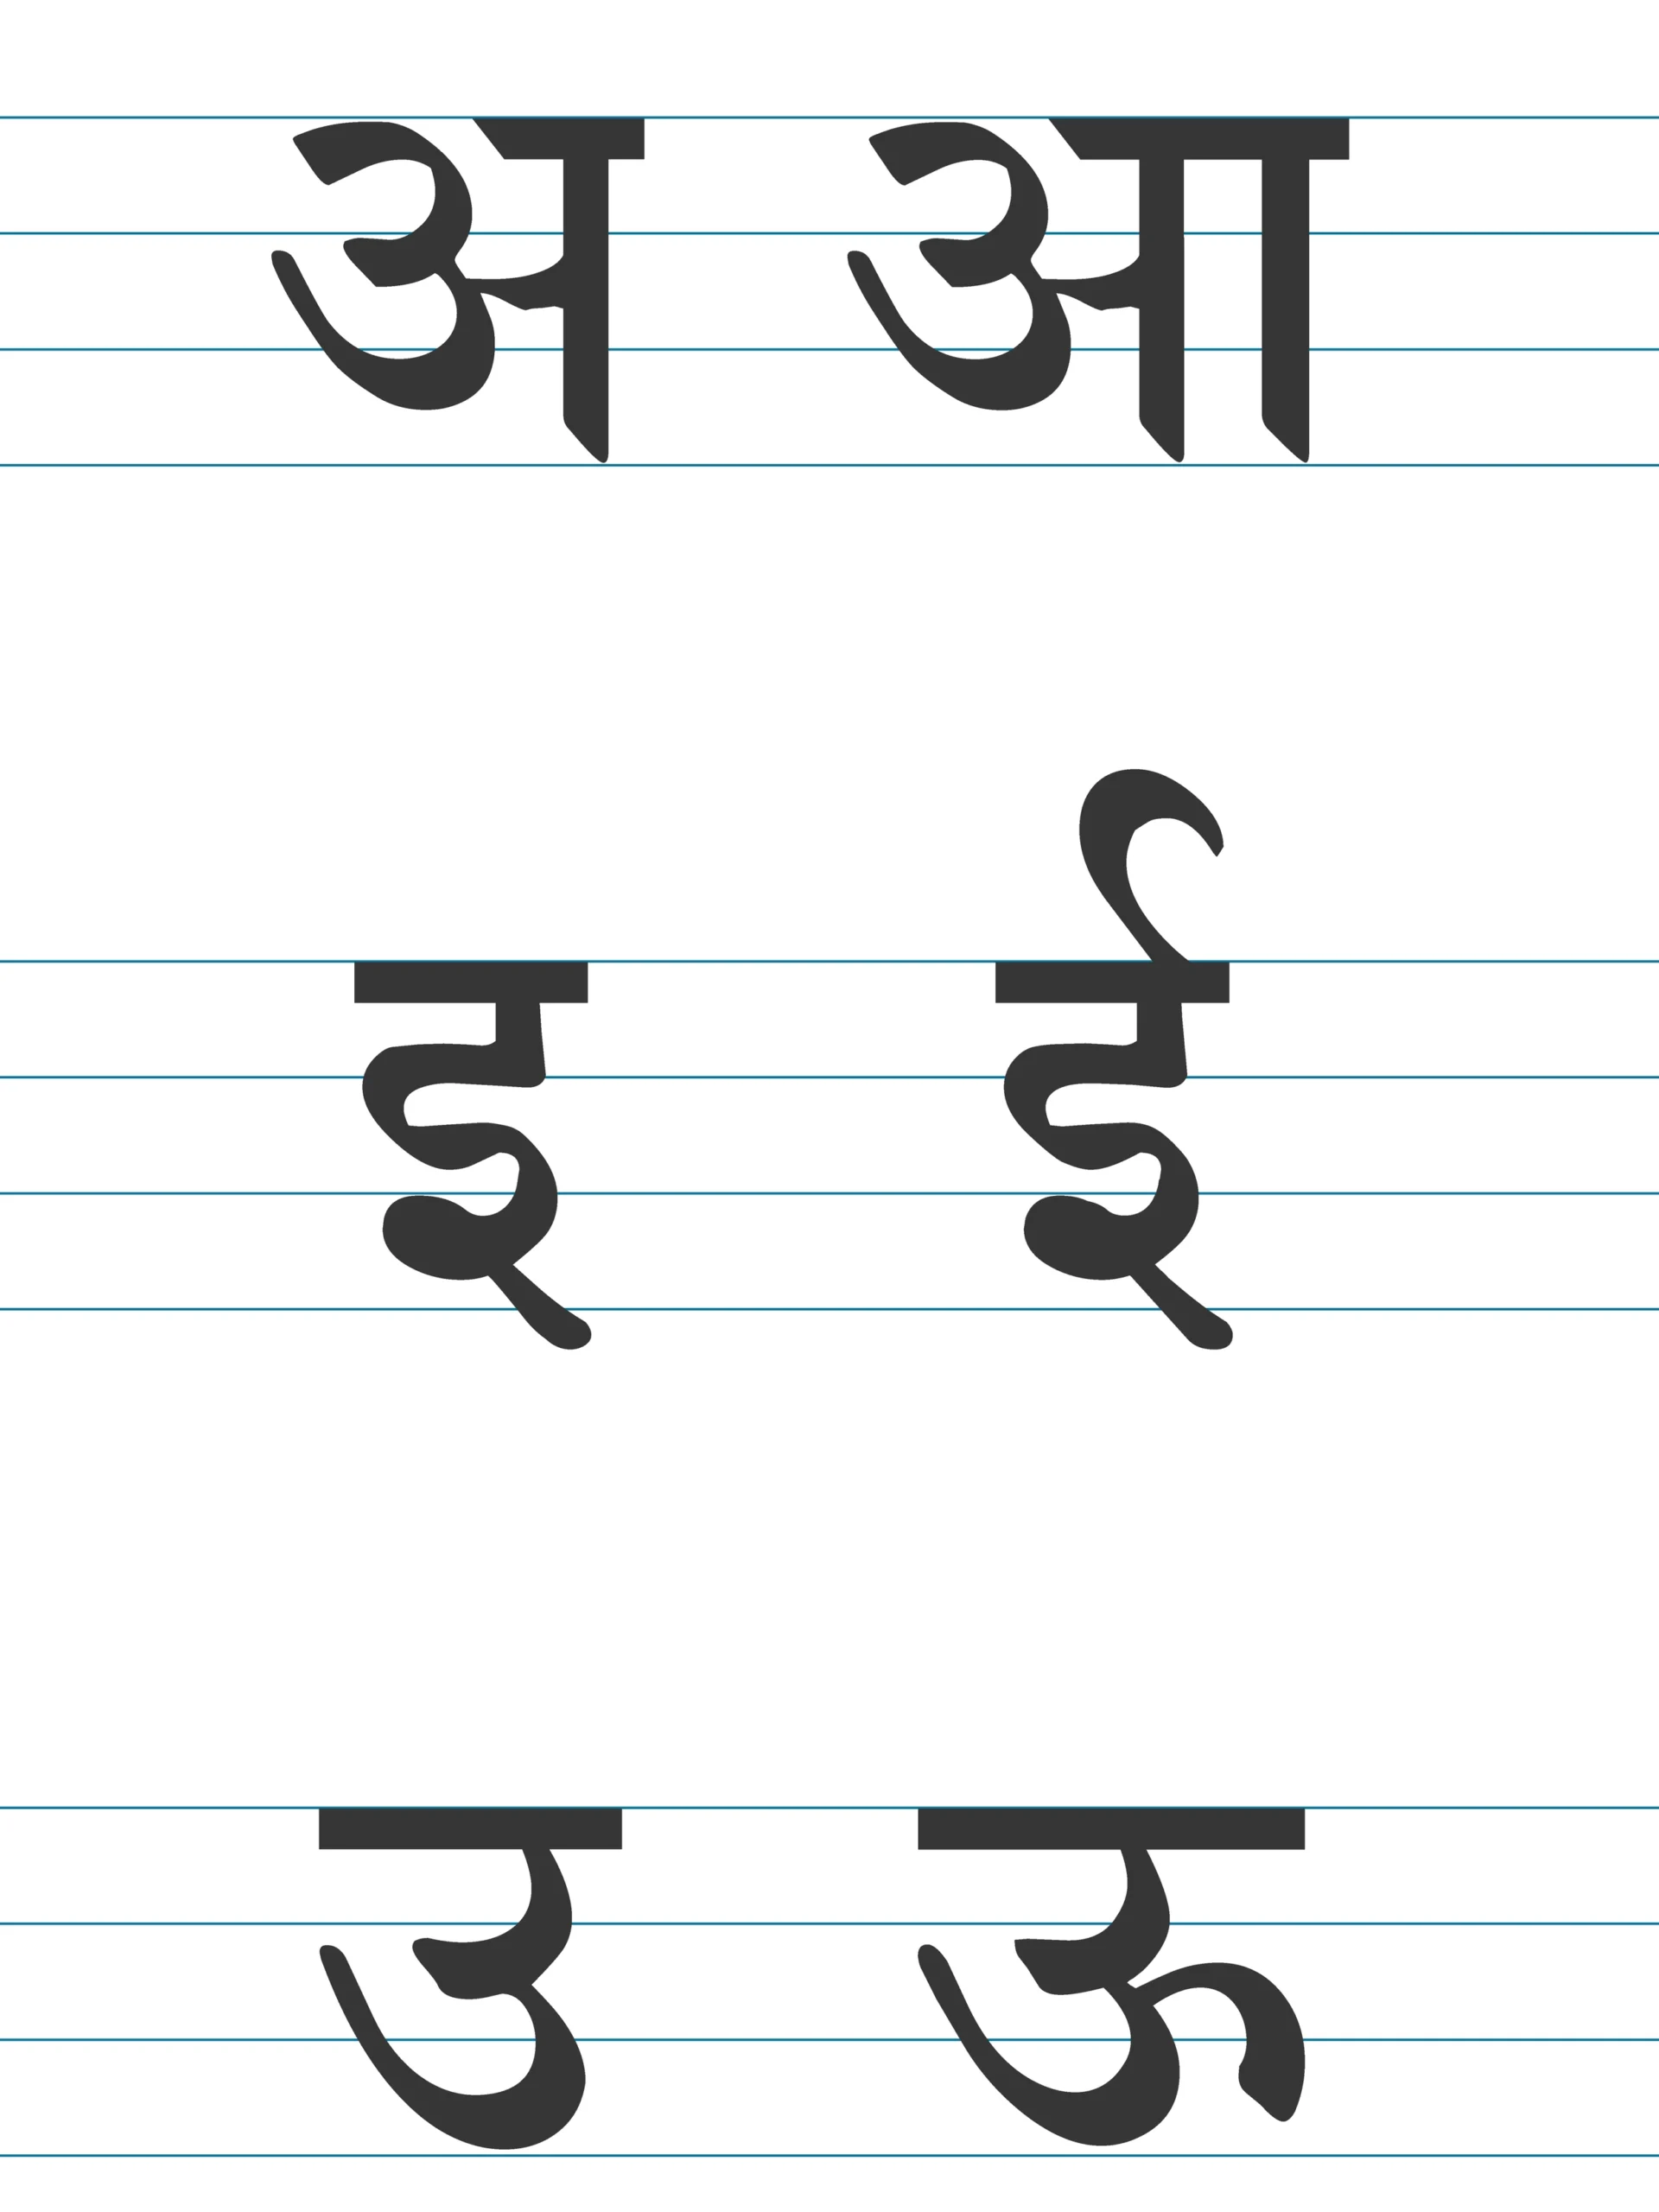 अ आ
इ ई
उ ऊ